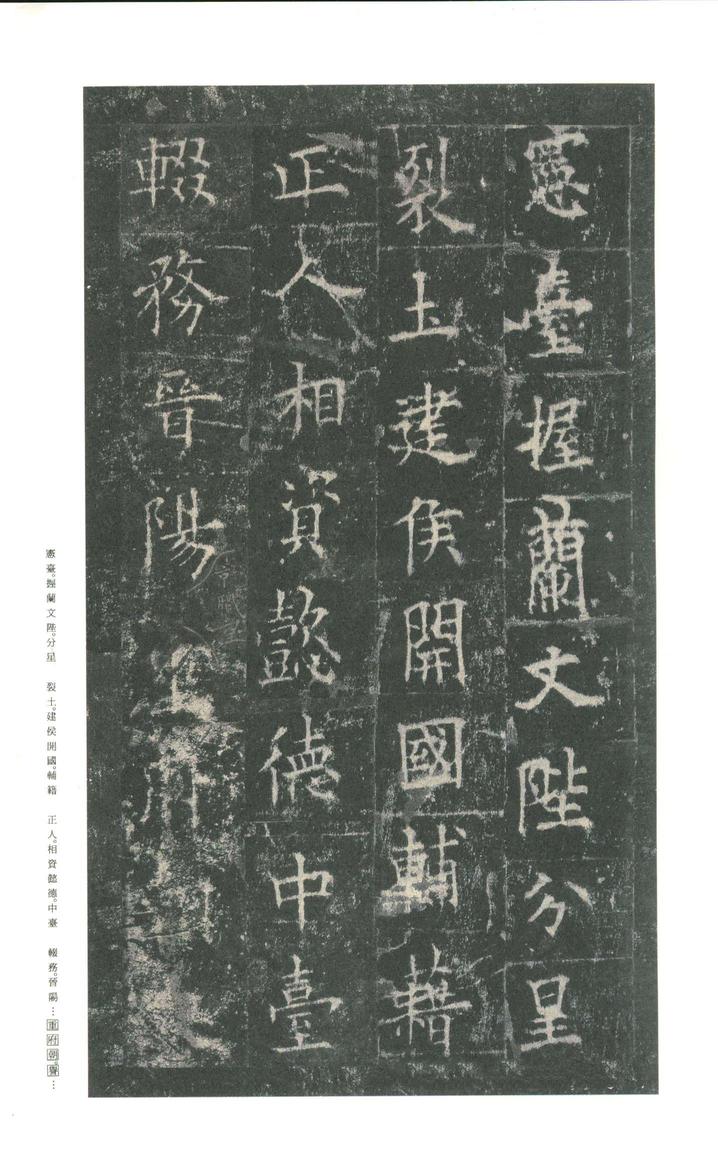 憲臺握蘭文陛分星
裂土建侯開國輔藉
正人相資懿德中臺
輟務晉陽
憲臺。握蘭文陛。分星 裂土。建侯開國。輔籍 正人。相資懿德。中臺 輟務。晉陽…重府朝